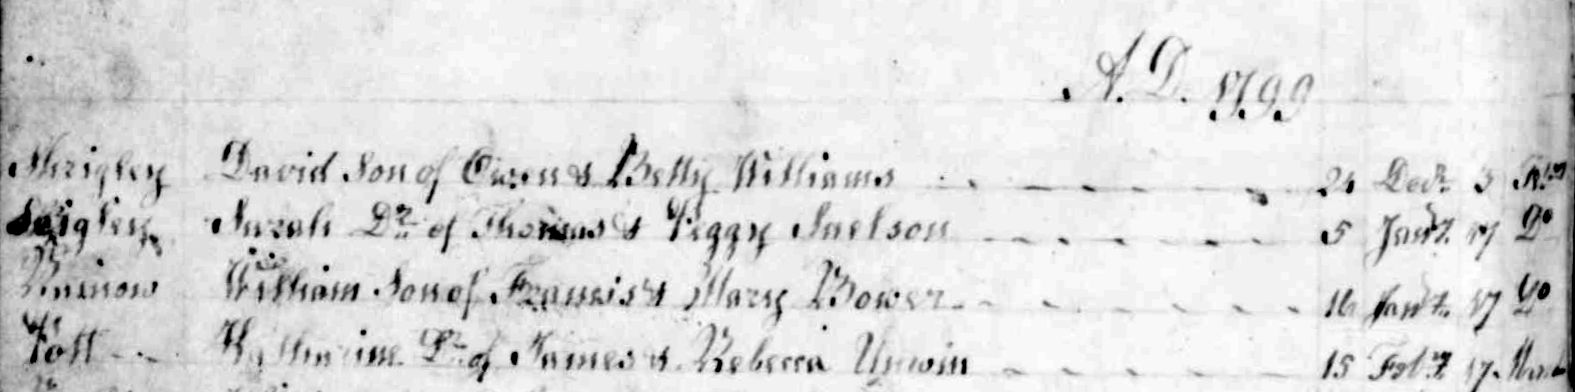 A.D. 1799
Shrigley David Son of Owen & Betty Williams 24 Decr. 3 Febry
Srigley Sarah Dr. of Thomas & Peggy Snelson 5 Jany. 17 Do
Rainow William Son of Francis & Mary Bower 16 Jany. 17 Do
Pott Katharine Dr. of James & Rebecca Unwin 15 Feby. 17 March